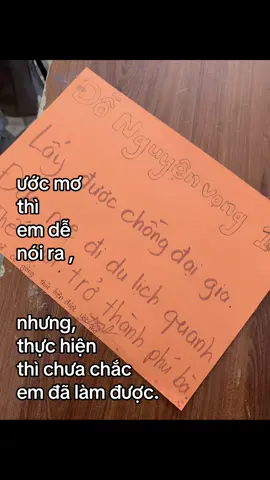 Đỗ Nguyện vọng 1
Lấy được chồng đại gia.
đi du lịch quanh
trở thành phú bà
ước mơ
thì
em dễ
nói ra ,
nhưng,
thực hiện
thì chưa chắc
em đã làm được.